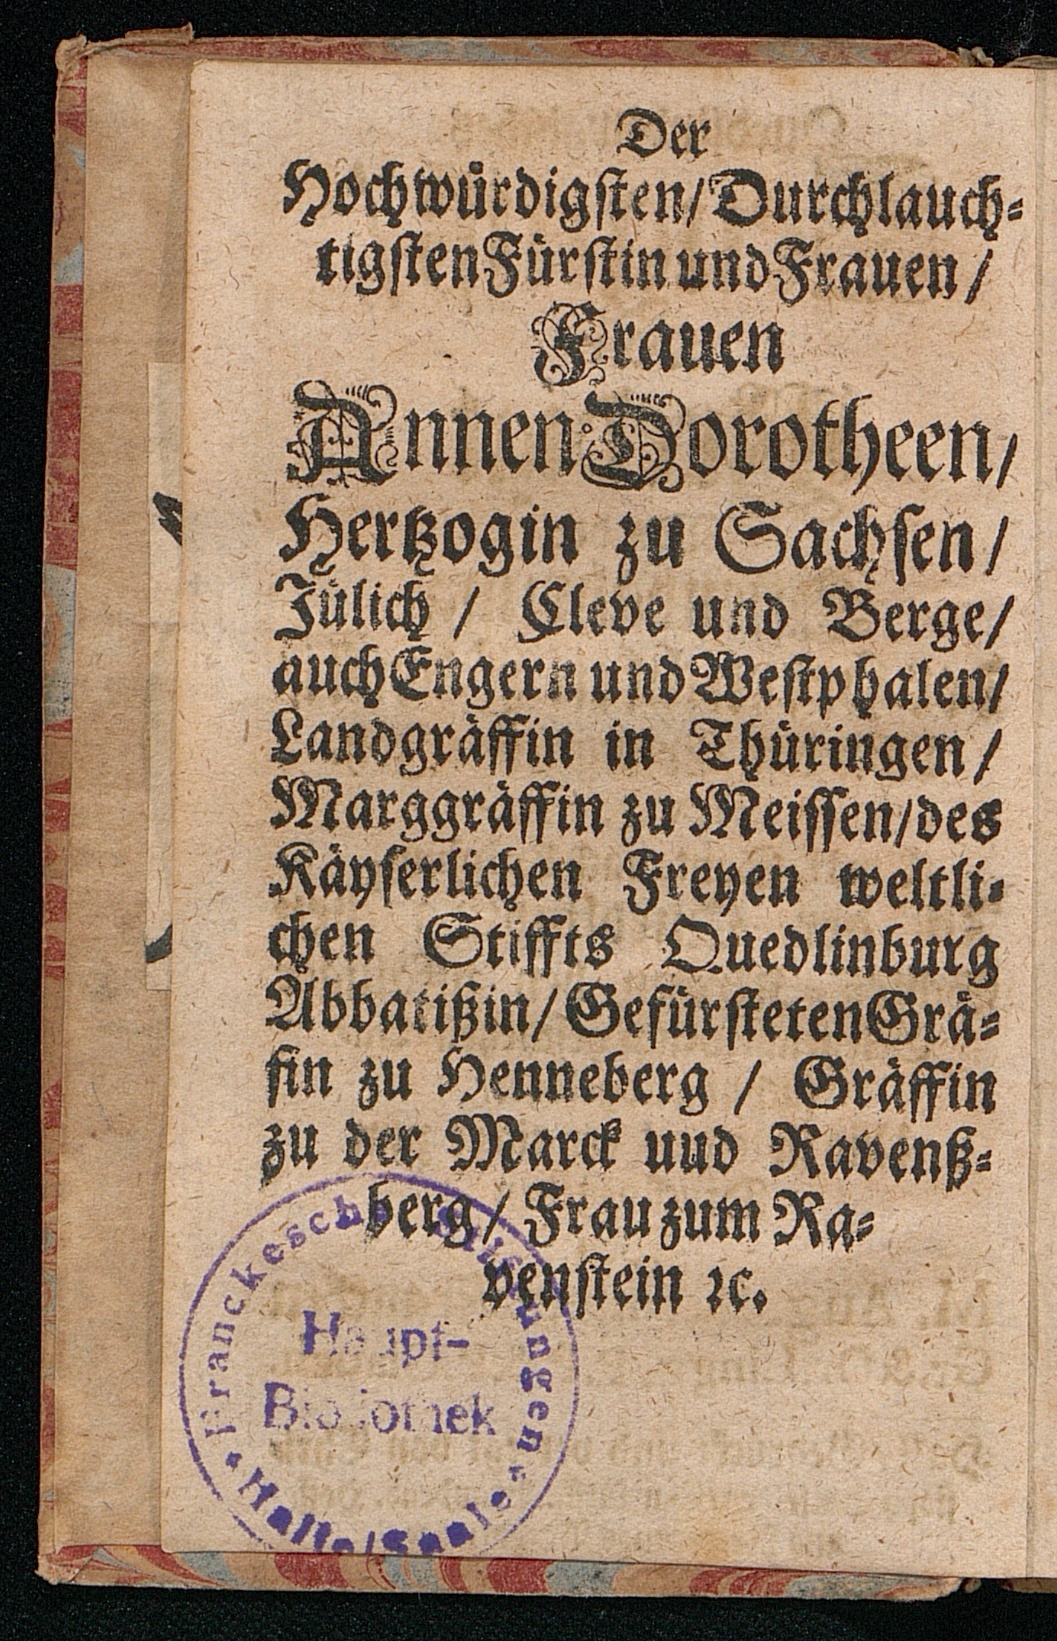 Der
Hochwürdigsten/Durchlauch-
tigsten Fürstin und Frauen/
Frauen
Annen Dorotheen/
Hertzogin zu Sachsen/
Jülich / Cleve und Berge/
auch Engern und Westphalen/
Landgräffin in Thüringen/
Marggräffin zu Meissen/des
Käyserlichen Freyen weltli-
chen Stiffts Quedlinburg
Abbatißin/Gefürsteten Grä-
fin zu Henneberg / Gräffin
zu der Marck uud Ravenß-
berg/ Frau zum Ra-
venstein ꝛc.
Franckesche Stiftungen
Haupt-
Bibliothek
Halle/Saale